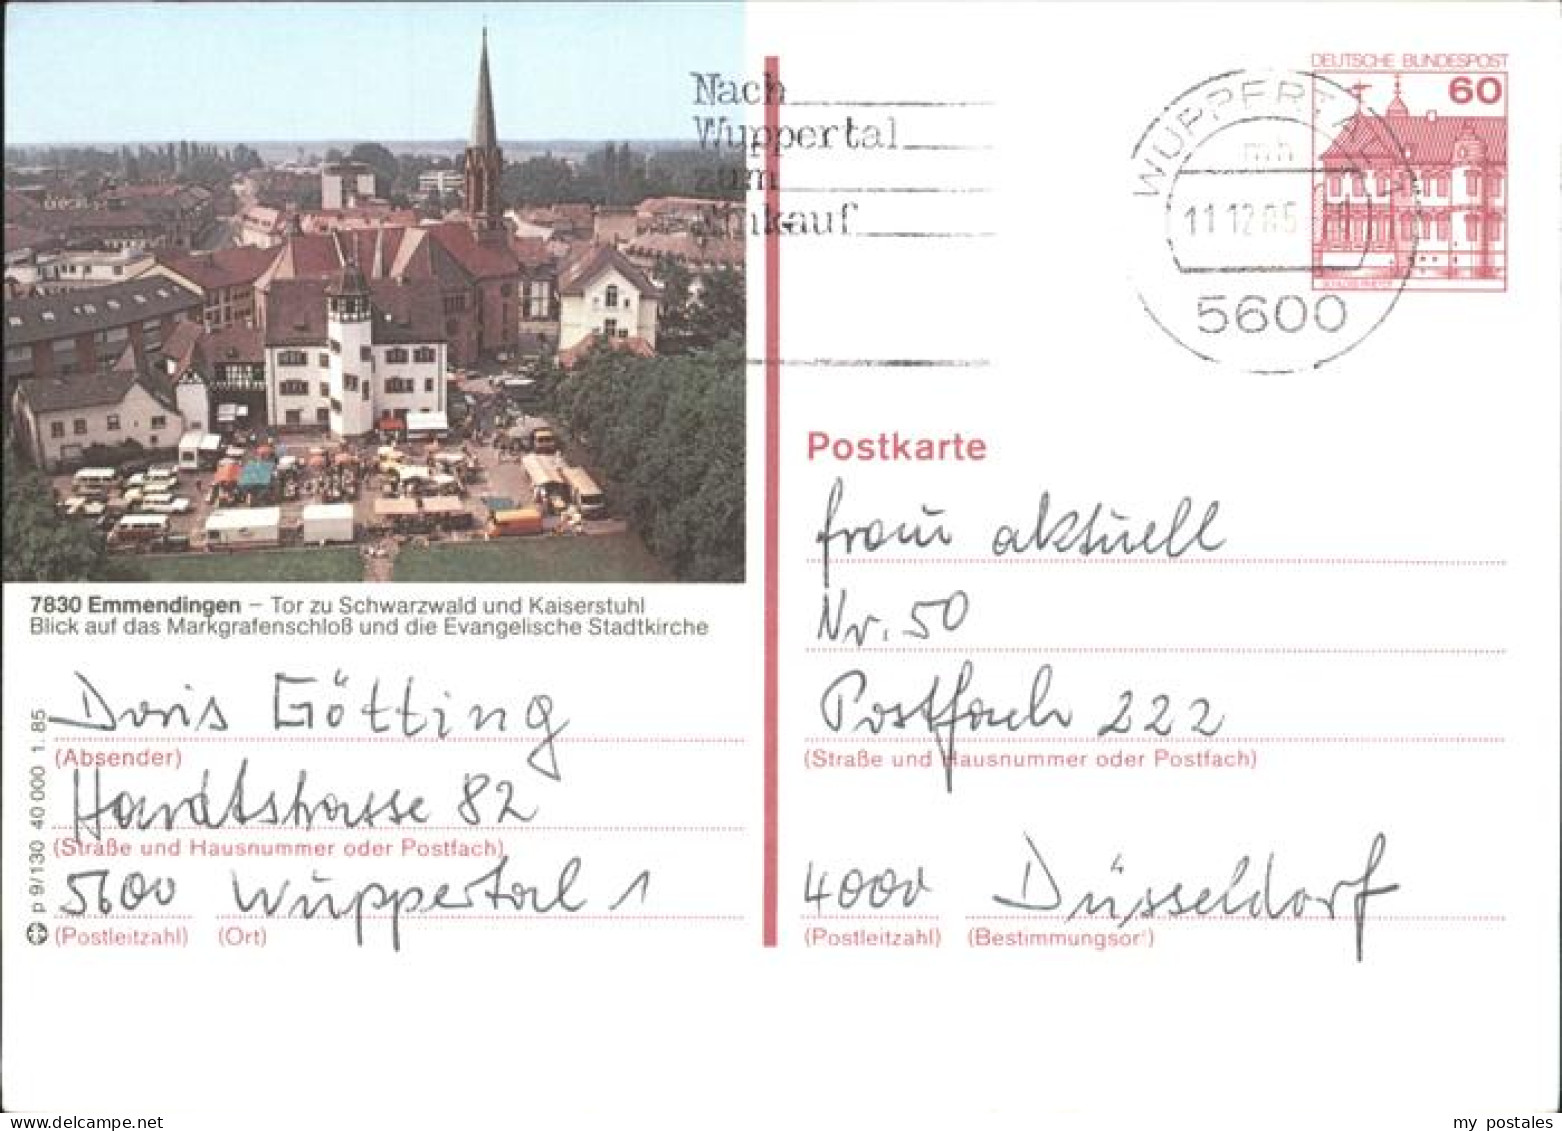 Nach
Wuppertal
zum
Einkauf
DEUTSCHE BUNDESPOST
60
WUPPERTAL
mh
11.12.85
5600
7830 Emmendingen – Tor zu Schwarzwald und Kaiserstuhl
Blick auf das Markgrafenschloß und die Evangelische Stadtkirche
Doris Götting
(Absender)
Hardtstrasse 82
(Straße und Hausnummer oder Postfach)
5600 Wuppertal 1
(Postleitzahl) (Ort)
p 9/130 40 000 1.85
Postkarte
frau aktuell
Nr. 50
Postfach 222
(Straße und Hausnummer oder Postfach)
4000 Düsseldorf
(Postleitzahl) (Bestimmungsort)
my postales